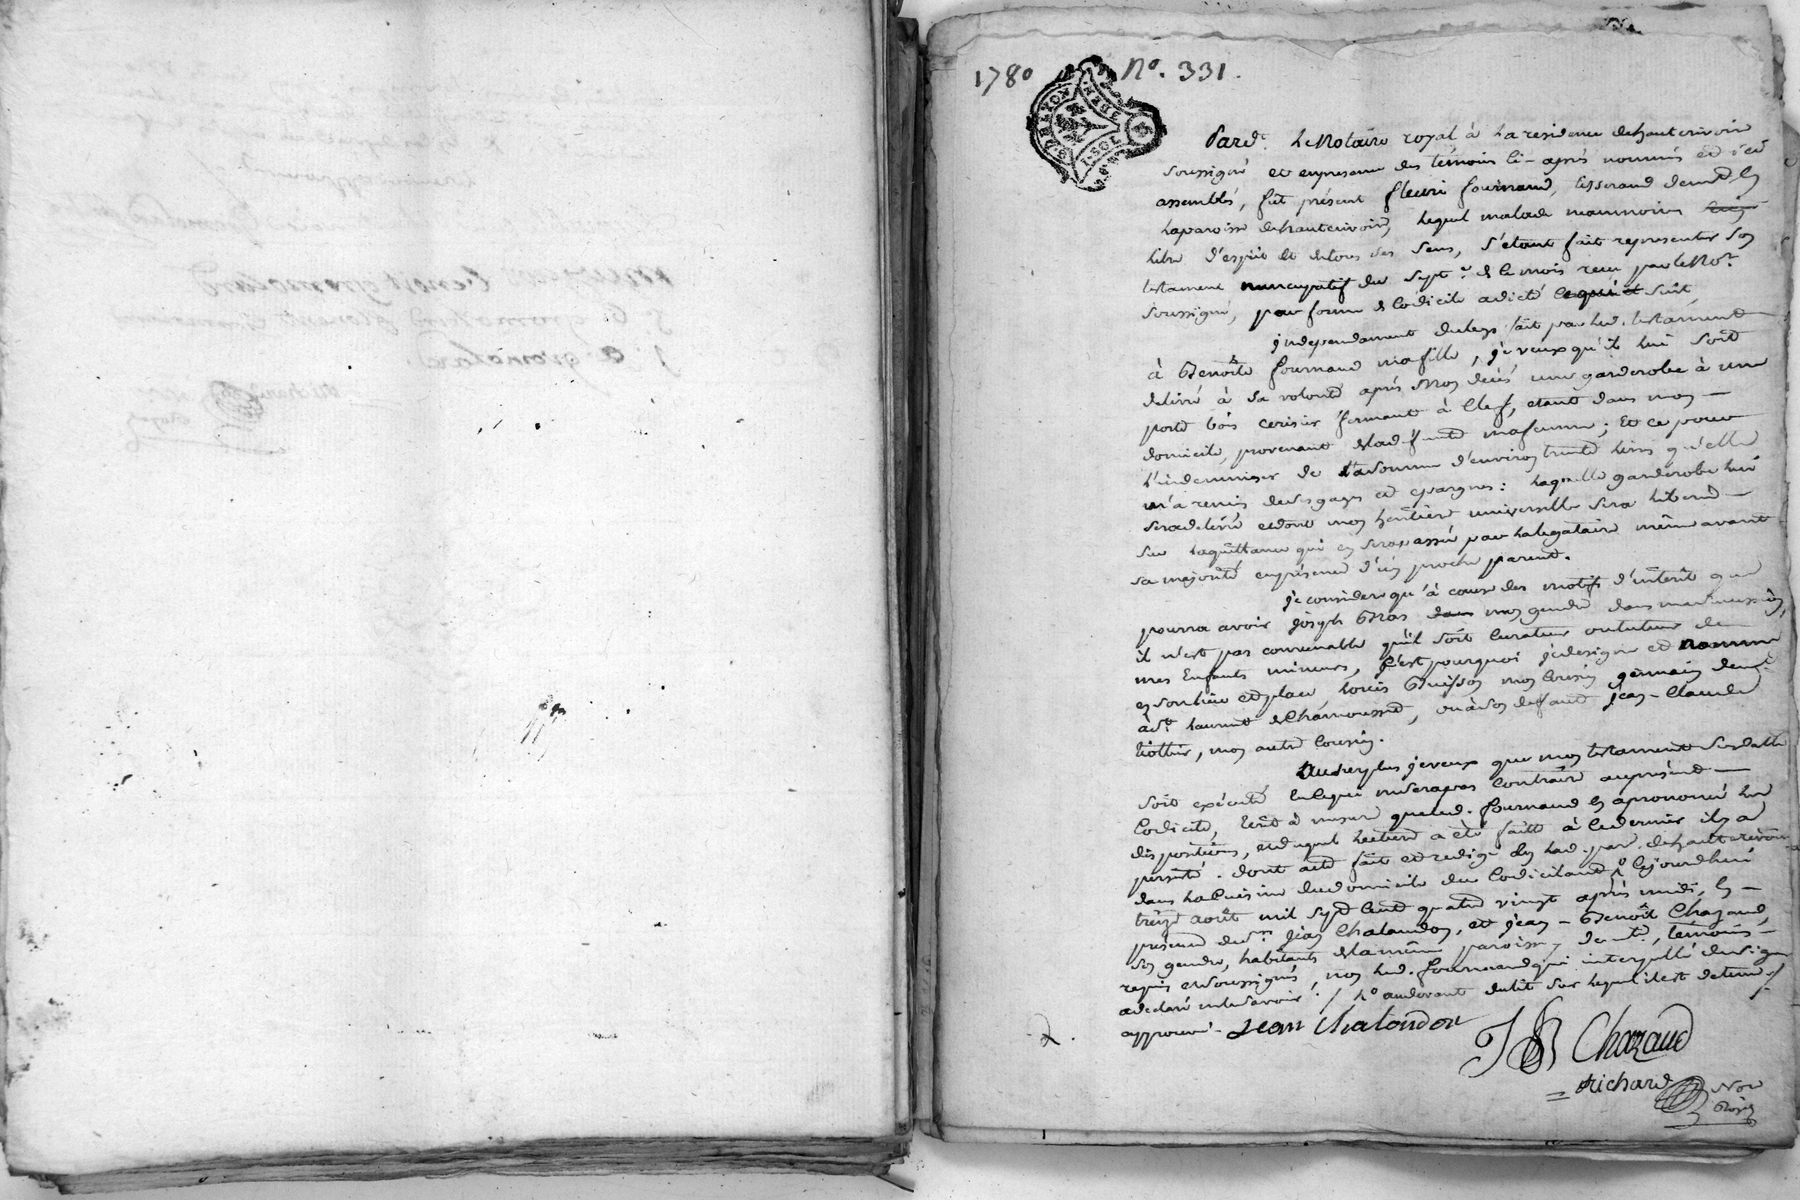 1780 No. 331.
Pard.t Le Notaire royal à la residence dehauterivoire
soussigné et enpresence des témoins ci-après nommés et icy
assemblés, fut présent fleuri fournand, tisserand demt. en
laparoisse dehauterivoire, lequel malade neanmoins
libre d'esprit et detous ses sens, s'étant fait representer son
testament nuncupatif du sept.e de ce mois recu par le No.re
soussigné, par forme de Codicile a dicté cequi suit
jndependament dulegs fait par led. testament
à Benoite fournand ma fille, je veux qu'il lui soit
delivré à sa volonté après mon décès une garderobe à une
porte bois cerisier fermant à Clef, etant dans mon
domicile, provenant de lad. funte mafemme; Et ce pour
l'indemniser de lasomme d'environ trente livres qu'elle
m'a remis deses gages et epargnes: laquelle garderobe lui
seradelivré etdont mon heritière universelle sera libérée
sur laquittance qui en serapassée par lalegataire même avant
sa majorité enprésence d'un proche parent.
je considere qu'à cause des motifs d'intérêt que
pourra avoir joseph Bras mon gendre dans masuccession,
il n'est pas convenable qu'il soit curateur oututeur de
mes Enfants mineurs, C'est pourquoi jedesigne et nomme
en sonlieu etplace louis Buisson mon Cousin germain demt.
à St. laurent de Chamousset, ou àson defaut jean-Claude
tiollier, mon autre Cousin.
Ausurplus jeveux que mon testament susdatté
soit exécuté en cequi nesera pas Contraire auprésent
Codicile, Ecrit à mesure queled. fournand en aprononcé les
dispositions, et duquel lecture a été faitte à cedernier il y a
persisté. dont acte fait et redigé en lad. par. de hauterivoire
dans laCuisine dudomicile du Codicilant cejourdhui
treize août mil sept Cent quatre vingt après midi, En
présence de srs. jean Chalandon, et jean-Benoît Chazaud,
son gendre, habitants delamême paroisse, demt., témoins
requis etsoussignés, non led. fournand qui interpellé de signer
adeclaré nelesavoir ./ audevant dulit sur lequel il est detenu./
approuvé. Jean Chalandon
JB Chazaud
Richard Nore
Royal